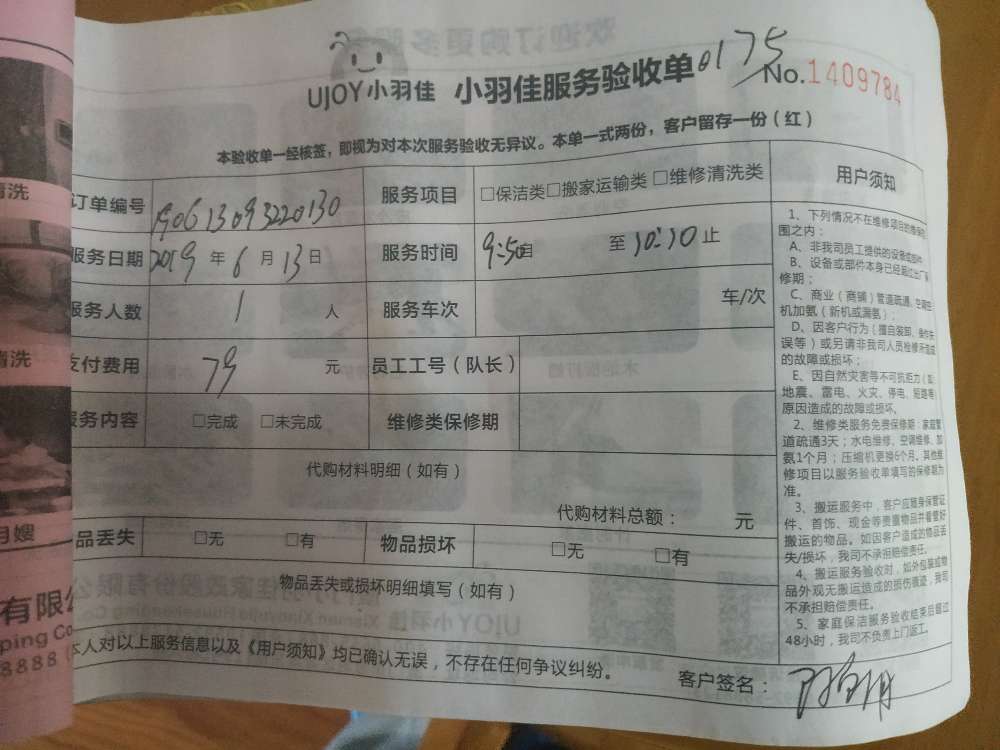 欢迎订购更多服
UJOY小羽佳 小羽佳服务验收单 0175
No.1409784
本验收单一经核签，即视为对本次服务验收无异议。本单一式两份，客户留存一份（红）
订单编号 190613093220130 服务项目 □保洁类□搬家运输类 □维修清洗类
服务日期 2019 年 6 月 13 日 服务时间 9:50自 至 10:10 止
服务人数 1 人 服务车次 车/次
支付费用 79 元 员工工号（队长）
服务内容 □完成 □未完成 维修类保修期
代购材料明细（如有）
代购材料总额： 元
品丢失 □无 □有 物品损坏 □无 □有
物品丢失或损坏明细填写（如有）
本人对以上服务信息以及《用户须知》均已确认无误，不存在任何争议纠纷。
客户签名：
用户须知
1、下列情况不在维修项目的维保范
围之内：
A、非我司员工提供的设备或部件
B、设备或部件本身已经超过出厂保
修期；
C、商业（商铺）管道疏通、空调空
机加氨（新机或漏氨）；
D、因客户行为（擅自装卸、操作失
误等）或另请非我司人员检修所造成
的故障或损坏；
E、因自然灾害等不可抗拒力（如：
地震、雷电、火灾、停电、短路等）
原因造成的故障或损坏。
2、维修类服务免费保修期：家庭管
道疏通3天；水电维修、空调维修、加
氨1个月；压缩机更换6个月。其他维
修项目以服务验收单填写的保修期为
准。
3、搬运服务中，客户应随身保管证
件、首饰、现金等贵重物品并看管好
搬运的物品。如因客户造成的物品丢
失/损坏，我司不承担赔偿责任。
4、搬运服务验收时，如外包装或物
品外观无搬运造成的损伤痕迹，我司
不承担赔偿责任。
5、家庭保洁服务验收结束后超过
48小时，我司不负责上门返工。
清洗
清洗
月嫂
有限公
ping Co
8888